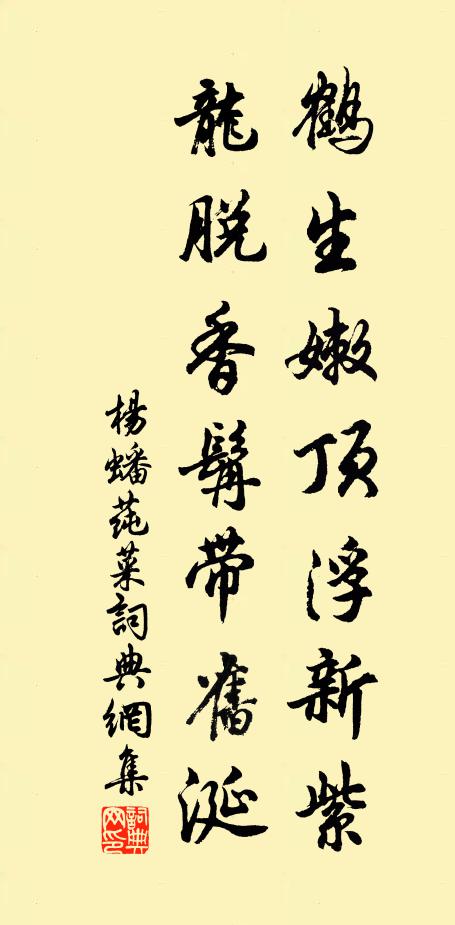 鶴生嫩頂浮新紫
龍脫香髯帶舊涎
楊蟠蒓菜詞典網集
詞典網印